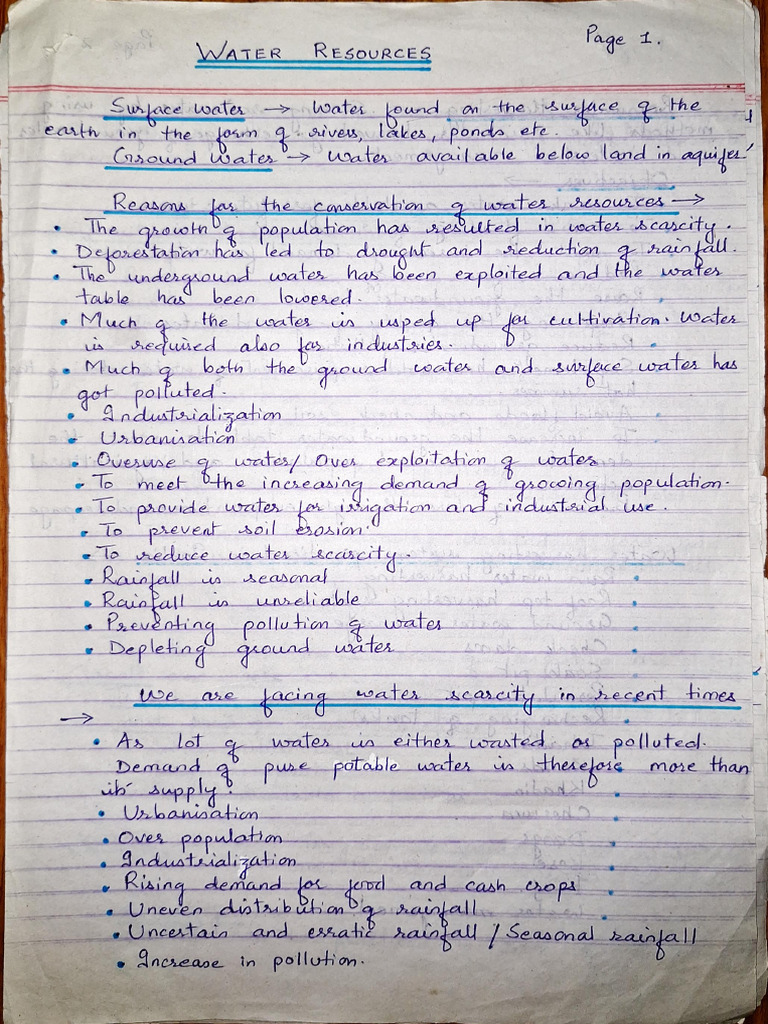 Page 1.
WATER RESOURCES
Surface water → Water found on the surface of the
earth in the form of rivers, lakes, ponds etc.
Ground Water → Water available below land in aquifer
Reasons for the conservation of water resources →
• The growth of population has resulted in water scarcity.
• Deforestation has led to drought and reduction of rainfall.
• The underground water has been exploited and the water
table has been lowered.
• Much of the water is usped up for cultivation. Water
is required also for industries.
• Much of both the ground water and surface water has
got polluted.
• Industrialization
• Urbanisation
• Overuse of water/ Over exploitation of water
• To meet the increasing demand of growing population.
• To provide water for irrigation and industrial use.
• To prevent soil erosion.
• To reduce water scarcity.
• Rainfall is seasonal
• Rainfall is unreliable
• Preventing pollution of water
• Depleting ground water
We are facing water scarcity in recent times
→
• As lot of water is either wasted or polluted.
Demand of pure potable water is therefore more than
its supply.
• Urbanisation
• Over population
• Industrialization
• Rising demand for food and cash crops
• Uneven distribution of rainfall
• Uncertain and erratic rainfall / Seasonal rainfall
• Increase in pollution.